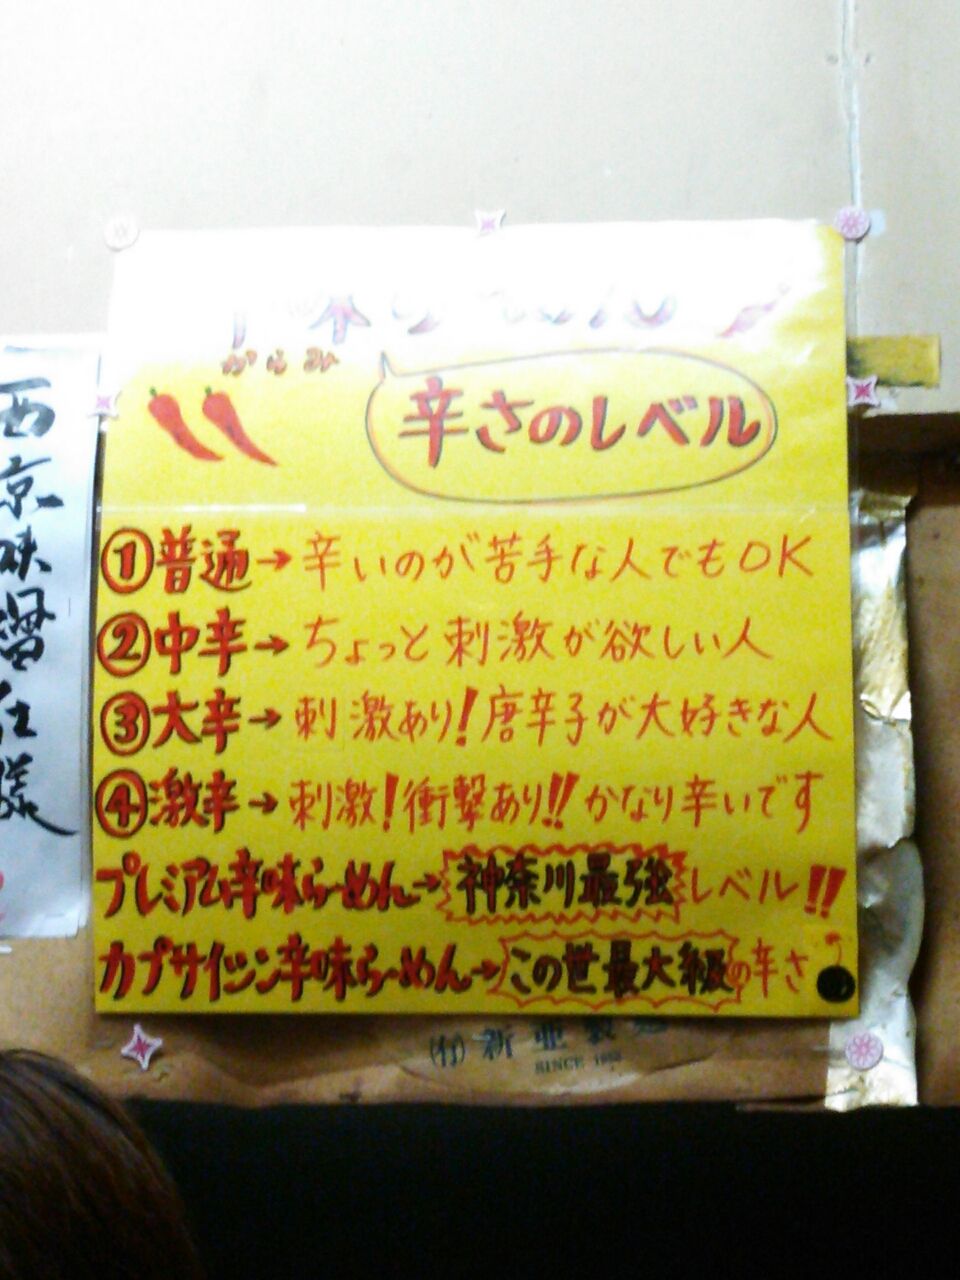 からみ
辛さのレベル
①普通→辛いのが苦手な人でもOK
②中辛→ちょっと刺激が欲しい人
③大辛→刺激あり!唐辛子が大好きな人
④激辛→刺激!衝撃あり!!かなり辛いです
プレミアム辛味らーめん→神奈川最強レベル!!
カプサイシン辛味らーめん→この世最大級の辛さ
(有)新亜製
SINCE
西京味噌仕様